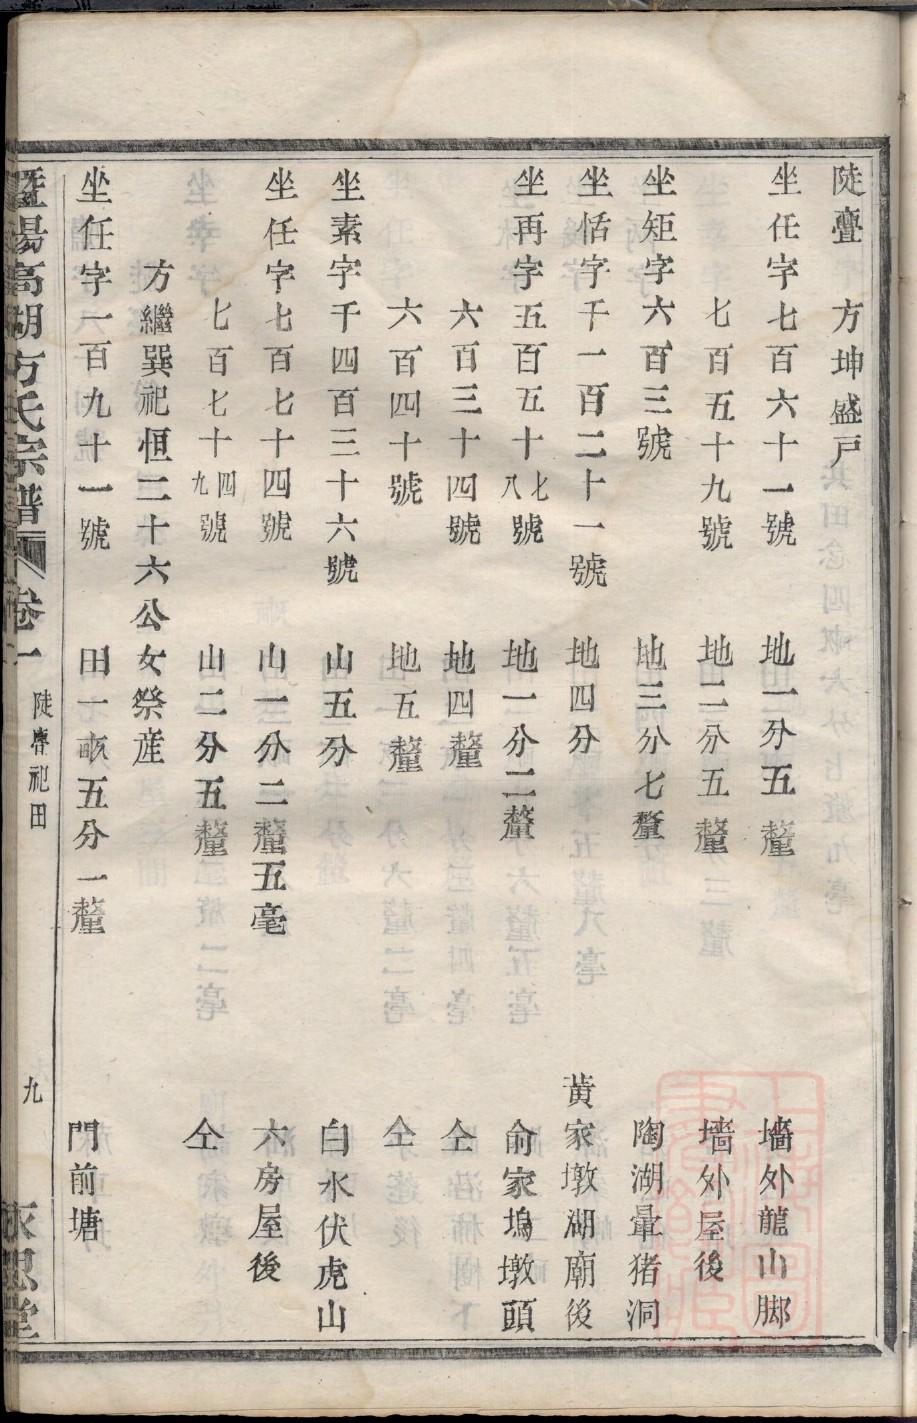 陡亹　方坤盛戸
坐任字七百六十一號　地二分五釐　墻外龍山脚
七百五十九號　地二分五釐　墻外屋後
坐矩字六百三號　地三分七釐　陶湖暈猪洞
坐恬字千一百二十一號　地四分　黄家墩湖廟後
坐再字五百五十七八號　地一分二釐　俞家塢墩頭
六百三十四號　地四釐　仝
六百四十號　地五釐　仝
坐素字千四百三十六號　山五分　白水伏虎山
坐任字七百七十四號　山一分二釐五毫　六房屋後
七百七十四九號　山二分五釐　仝
方繼巽祀恒二十六公女祭産
坐任字一百九十一號　田一畝五分一釐　門前塘
暨陽高湖方氏宗譜　卷一　陡亹祀田　九　永思堂